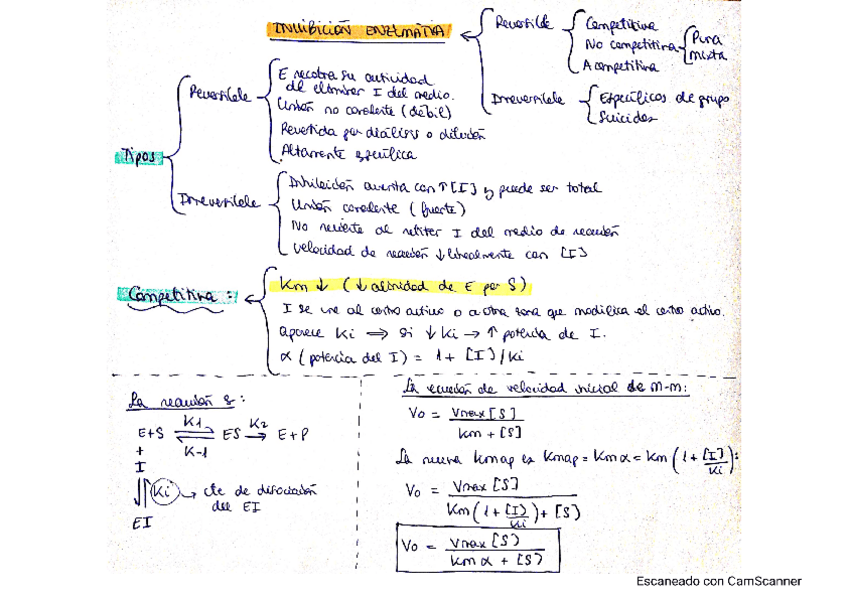 INHIBICIÓN ENZIMÁTICA
Reversible
Competitiva
No competitiva
Pura
mixta
Acompetitiva
Irreversible
Específicos de grupo
Suicidas
Tipos
Reversible
E recobra su actividad
al eliminar I del medio.
Unión no covalente (débil)
Revertida por diálisis o dilución
Altamente específica
Irreversible
Inhibición aumenta con ↑[I] y puede ser total
Unión covalente (fuerte)
No revierte al retirar I del medio de reacción
Velocidad de reacción ↓ linealmente con [I]
Competitiva:
Km ↓ (↓ afinidad de E por S)
I se une al centro activo o a otra zona que modifica el centro activo.
Aparece Ki ⟹ Si ↓Ki → ↑ potencia de I.
α (potencia del I) = 1 + [I]/Ki
La reacción es:
E+S ⇌ ES → E+P
K1
K2
K-1
+
I
Ki → cte de disociación
del EI
EI
La ecuación de velocidad inicial de M-M:
Vo = Vmax [S] / Km + [S]
La nueva Kmap es Kmap = Km α = Km (1 + [I]/Ki):
Vo = Vmax [S] / Km (1 + [I]/Ki) + [S]
Vo = Vmax [S] / Km α + [S]
Escaneado con CamScanner